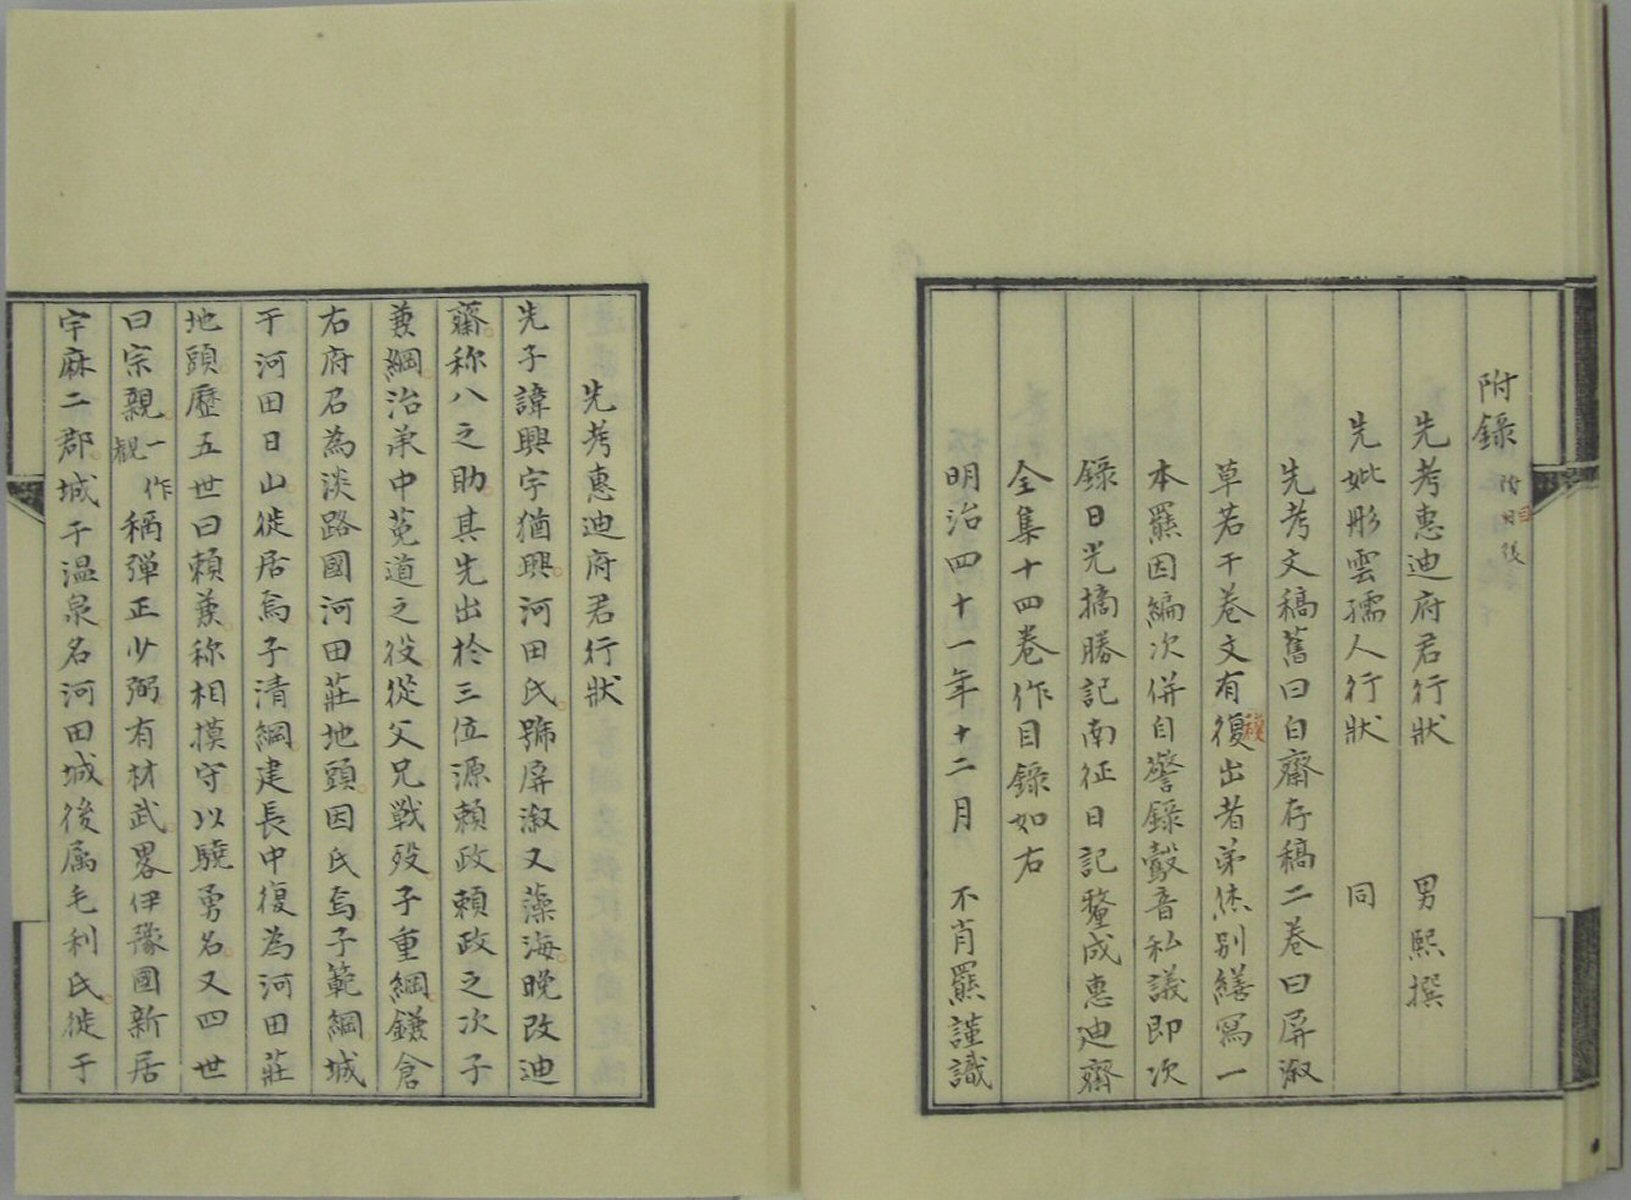 附錄
附目後
先考惠迪府君行狀 男熙撰
先妣彤雲孺人行狀 同
先考文稿舊曰白齋存稿二卷曰屏淑
草若干卷文有復出者弟烋別繕寫一
複
本羆因編次併自警錄鷇音私議即次
錄日光摘勝記南征日記釐成惠迪齋
全集十四卷作目錄如右
明治四十一年十二月 不肖羆謹識
先考惠迪府君行狀
先子諱興字猶興河田氏號屏淑又藻海晚改迪
齋称八之助其先出於三位源頼政頼政之次子
兼綱治承中莵道之役從父兄戰歿子重綱鎌倉
右府召為淡路國河田莊地頭因氏焉子範綱城
于河田日山徙居焉子清綱建長中復為河田莊
地頭歷五世曰頼兼称相摸守以驍勇名又四世
曰宗親一作覩稱弾正少弼有材武畧伊豫國新居
宇麻二郡城于温泉名河田城後属毛利氏徙于